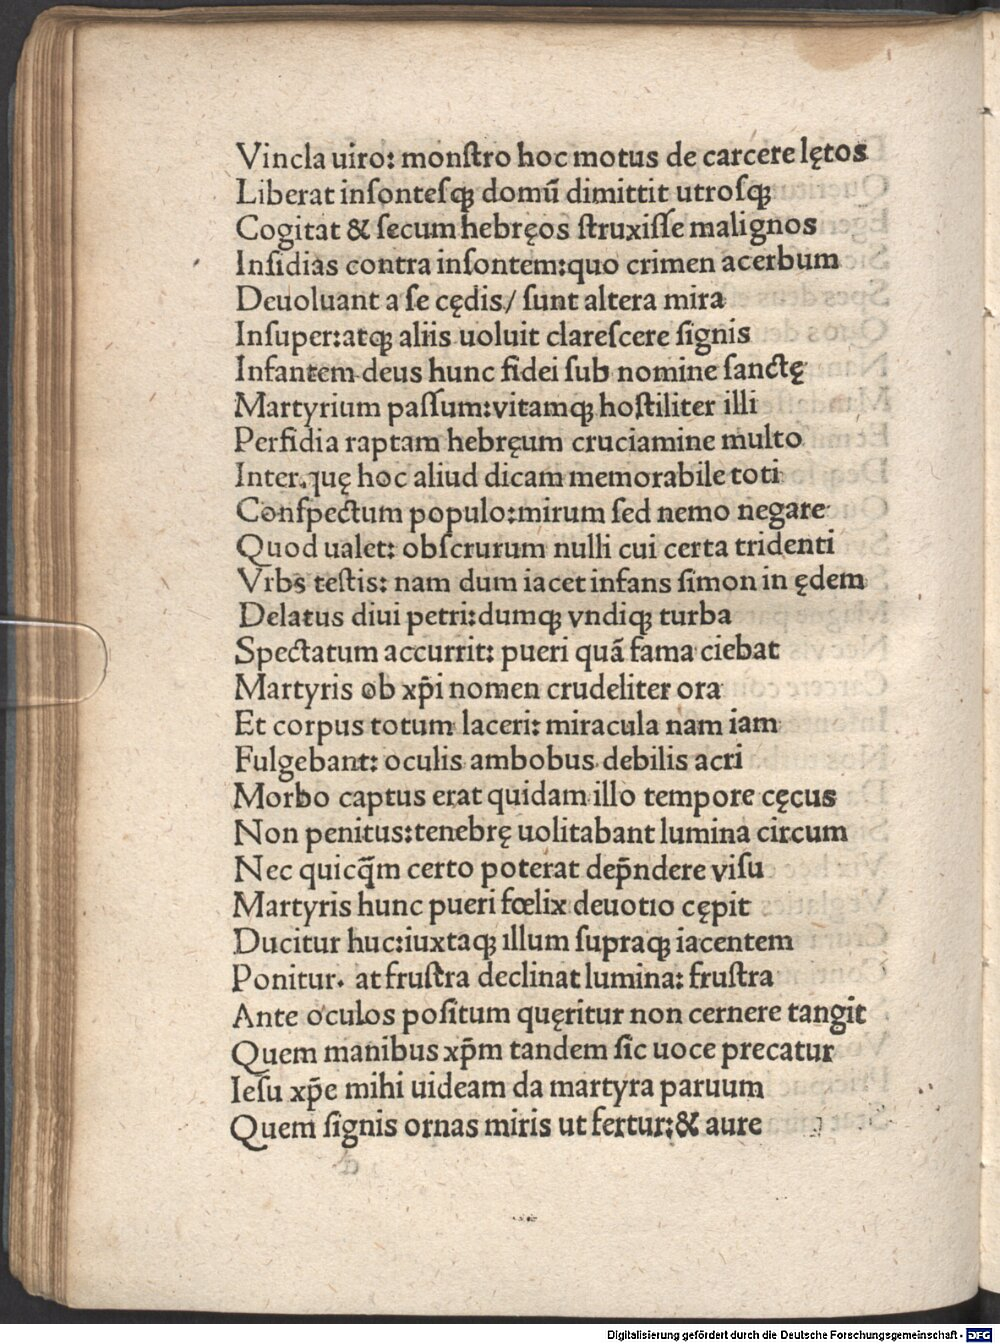 Vincla uiro: monſtro hoc motus de carcere lętos
Liberat inſonteſqꝫ domū dimittit utroſqꝫ
Cogitat & ſecum hebręos ſtruxiſſe malignos
Inſidias contra inſontem:quo crimen acerbum
Deuoluant a ſe cędis/ ſunt altera mira
Inſuper:atqꝫ aliis uoluit clareſcere ſignis
Infantem deus hunc fidei ſub nomine ſanctę
Martyrium paſſum:vitamqꝫ hoſtiliter illi
Perfidia raptam hebręum cruciamine multo
Inter.quę hoc aliud dicam memorabile toti
Conſpectum populo:mirum ſed nemo negare
Quod ualet: obſcrurum nulli cui certa tridenti
Vrbs teſtis: nam dum iacet infans ſimon in ędem
Delatus diui petri:dumqꝫ vndiqꝫ turba
Spectatum accurrit: pueri quā fama ciebat
Martyris ob xp̄i nomen crudeliter ora
Et corpus totum laceri: miracula nam iam
Fulgebant: oculis ambobus debilis acri
Morbo captus erat quidam illo tempore cęcus
Non penitus:tenebrę uolitabant lumina circum
Nec quicq̄m certo poterat dep̄ndere viſu
Martyris hunc pueri fœlix deuotio cępit
Ducitur huc:iuxtaqꝫ illum ſupraqꝫ iacentem
Ponitur. at fruſtra declinat lumina: fruſtra
Ante oculos poſitum quęritur non cernere tangit
Quem manibus xp̄m tandem ſic uoce precatur
Ieſu xp̄e mihi uideam da martyra paruum
Quem ſignis ornas miris ut fertur:& aure
Digitalisierung gefördert durch die Deutsche Forschungsgemeinschaft - DFG